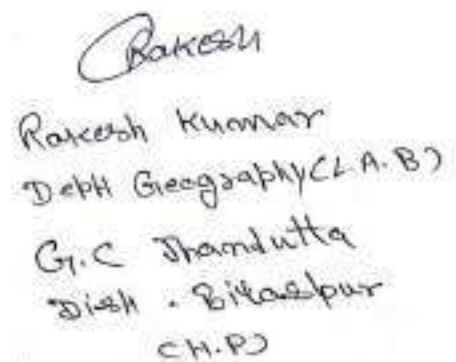 Rakesh
Rakesh Kumar
Deptt Geography (L.A.B)
G.C Jhandutta
Distt. Bilaspur
(H.P)